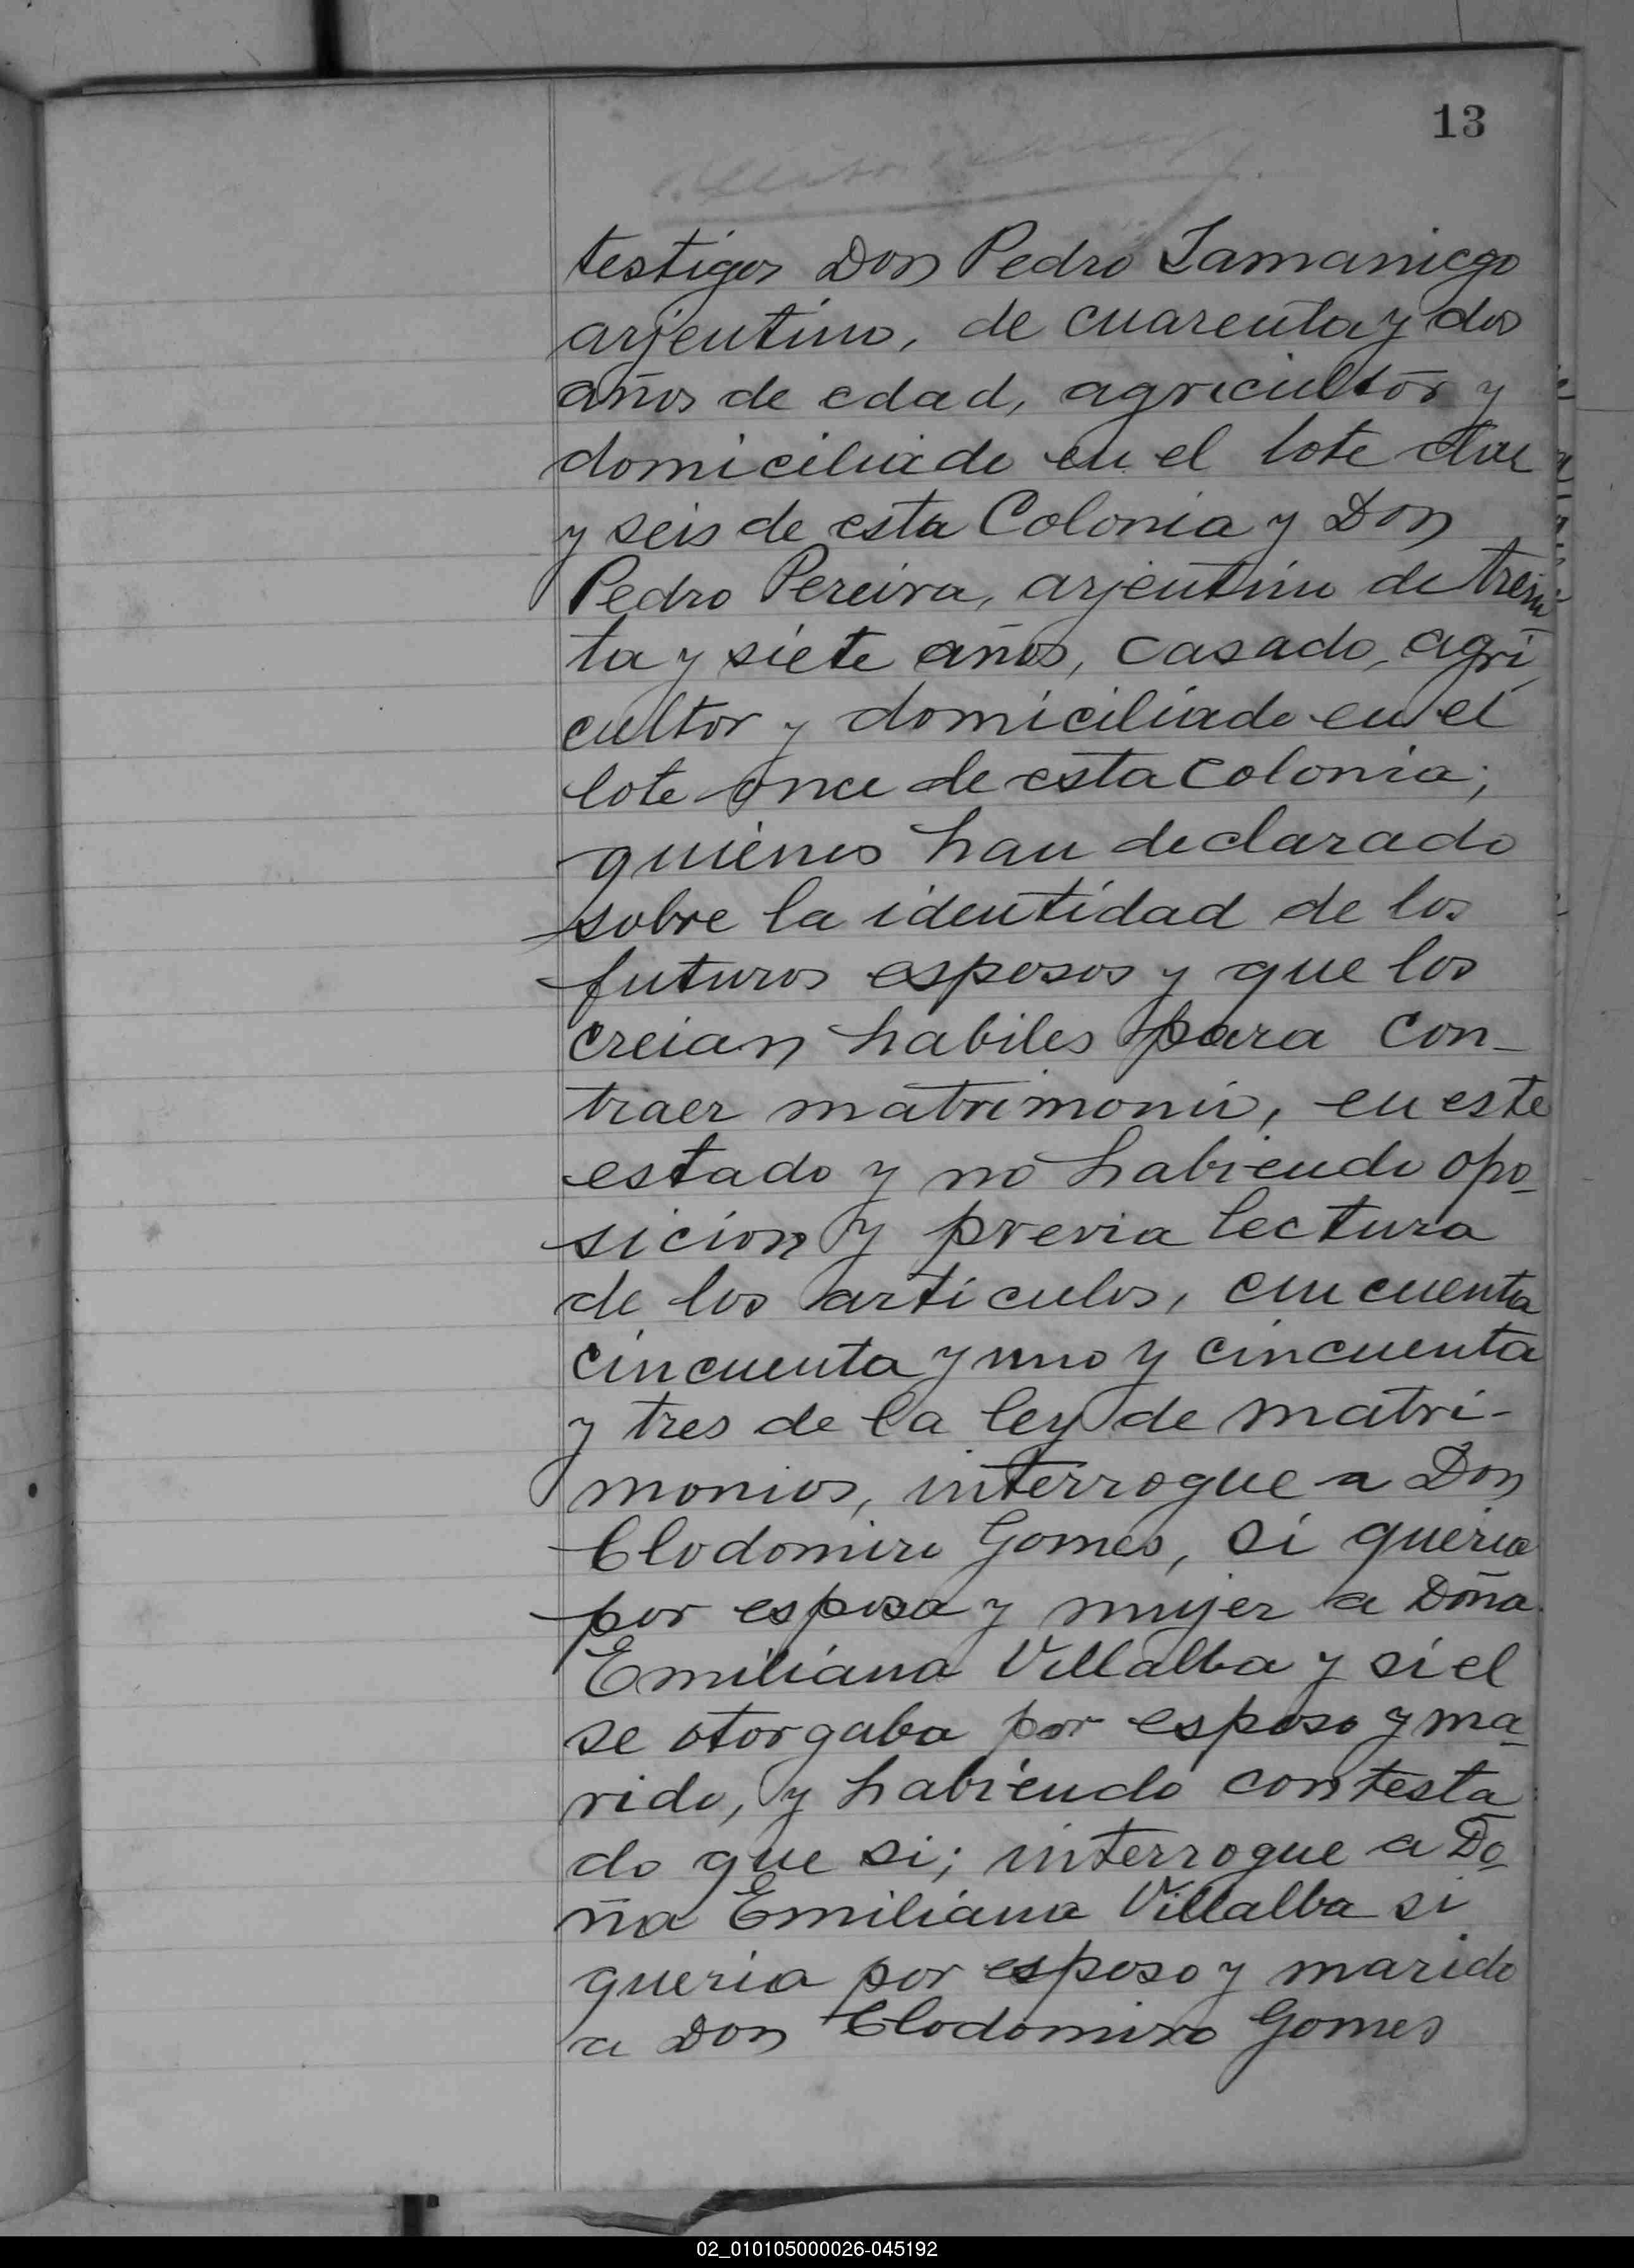 13
testigos Don Pedro Samaniego
arjentino, de cuarenta y dos
años de edad, agricultor y
domiciliado en el lote
y seis de esta Colonia y Don
Pedro Pereira, arjentino de trein
ta y siete años, casado, agri
cultor y domiciliado en el
lote once de esta colonia;
quienes han declarado
sobre la identidad de los
futuros esposos y que los
creian habiles para con-
traer matrimonio, en este
estado y no habiendo opo-
sicion y previa lectura
de los articulos, cincuenta
cincuenta y uno y cincuenta
y tres de la ley de matri-
monios, interrogue a Don
Clodomiro Gomes, si queria
por esposa y mujer a Doña
Emiliana Villalba y si el
se otorgaba por esposo y ma-
rido, y habiendo contesta
do que si; interrogue a Do-
ña Emiliana Villalba si
queria por esposo y marido
a Don Clodomiro Gomes
02_010105000026-045192